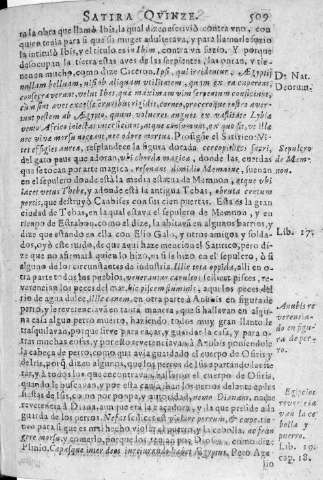 SATIRA QVINZE. 509
to la obra que llamò Ibis, la qual dize convirtiò contra vno, con
quien tenia para si que su muger adulterava, y para llamarlo suzio
la intitulò Ibis, y el titulo es in Ibim, contra vn suzio. Y porque
desocupan la tierra estas aves de las serpientes, las
nen en mucho, como dize Ciceron. Ipsi, qui irridentur, Ægyptij
nullam belluam, nisi ob aliquam utilitatem, quam ex ea caperent,
consecraverunt, velut Ibes, quòd maximam vim serpentum conficiunt,
cum sint aves excelsæ cruribus rigidis, corneo, proceroque rostro aver-
tunt pestem ab Ægypto, quum volucres angues ex vastitate Lybiæ
vento Africo invectas interficiunt, atque consumunt, ex quo fit, vt illæ
nec vivæ morsu noceant, nec odore mortuæ. Prosigue el Satirico. Ni-
tet effigies aurea, resplandece la figura dorada cercopitheci sacri,
del gato paus que adoran, vbi chordæ magicæ, donde las cuerdas
que se tocan por arte magica, resonant dimidio Memnone, suenan
en el sepulcro donde està la media estatua de Memnon, atque vbi
iacet vetus Thebe, y adonde està la antigua Tebas, obruta centum
portis, que destruyò Cambises con sus cien puertas. Esta es la gran
ciudad de Tebas, en la qual estava el sepulcro de Memnon, y en
tiempo de Estrabon, como el dize, la abitavan en algunos barrios, y
dize que estando en ella con Elio Galo, y otros amigos y solda-
dos, oyò este ruido, de que aqui haze mencion el Satirico, pero di-
ze que no afirmarà quien lo hizo, ni si lo hizo en el sepulcro, ò si
alguno de los circunstantes de industria. Illic tota oppida, alli en o-
tra parte todos los pueblos, venerantur cæruleos, pisces, re-
verencian los peces del mar, hic piscem fluminis, aqui los peces del
rio de agua dulce, illic canem, en otra parte à Anubis en figura de
perro, y le reverenciavan en tanta manera, que si hallavan en algu-
na casa algun perro muerto, haziendo todos muy gran llanto se
trasquilavan, porque sirve para caçar, y guarda de la casa, y para o-
tras muchas cosas, y por esto reverenciavan à Anubis poniendole
la cabeça de perro, como que avia guardado el cuerpo de Osiris y
del rio, porque dizen algunos, que los perros de Isis apartando las fie-
ras, y à todos los que encontravan, hallaron el cuerpo de Osiris,
quando le buscavan, y por esta causa iban los perros delante en las
fiestas de Isis, con no poca antiguedad, nemo Dianam, nadie
reverencia à Diana, aun que era la caçadora, y la que preside à la
guarda de los perros. Nefas illic est violare porrum, & cæpe, tie-
nen para si que es no hecho violar el puerro, y la cebolla, ac fran-
gere morsu, y comerlo, porque los tenian por Dioses, como dize
Plinio, Cæpas que inter deos in iurando habet Ægyptus, Pero Age
lio
De Nat.
Deorum.
Sepulcro
de Mem-
non.
Lib. 17.
Anubis re
verencia-
do en figu
ra de per-
ro.
Egipcios
reverencia
van la ce
bolla y
puerro.
Lib. 19.
cap. 18.